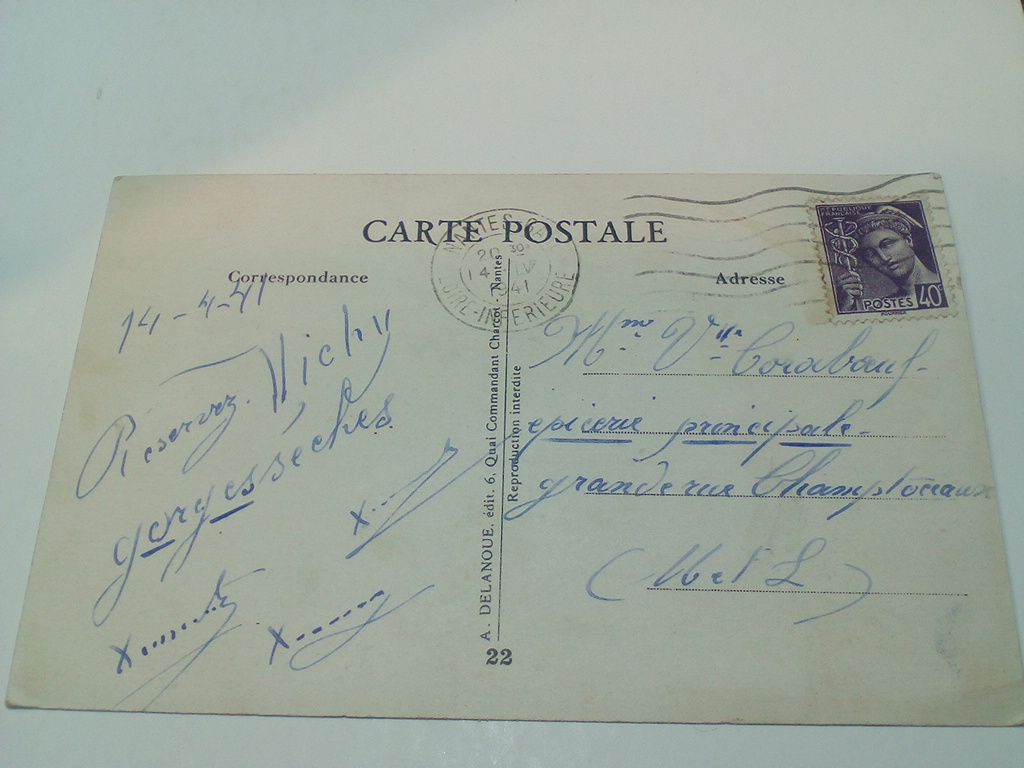 CARTE POSTALE
NANTES-GARE
20 30
14 IV
41
LOIRE-INFERIEURE
REPUBLIQUE
FRANÇAISE
POSTES 40c
Correspondance
Adresse
14-4-41
Réservez Vichy
gorges sèches
x
x
x
A. DELANOUE, édit. 6, Quai Commandant Charcot, Nantes
Reproduction interdite
22
Mme Vve Coiraboeuf
epicerie principale
grande rue Champtoceaux
(M et L)